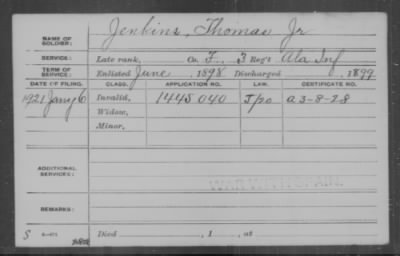 NAME OF SOLDIER: Jenkins, Thomas Jr
SERVICE: Late rank, Co. F, 3 Reg't Ala Inf
TERM OF SERVICE: Enlisted June, 1898 Discharged , 1899
DATE OF FILING. CLASS. APPLICATION NO. LAW. CERTIFICATE NO.
1921 Jany 6 Invalid, 1445040 a 3-8-28
Widow,
Minor,
ADDITIONAL SERVICES:
WAR WITH SPAIN.
REMARKS:
S
Died , 1 , at